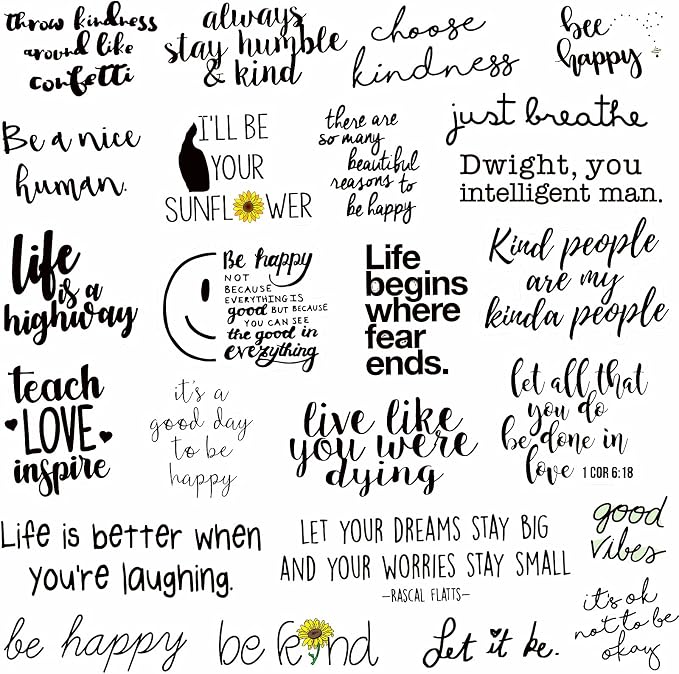 throw kindness
around like
confetti
always
stay humble
& kind
choose
kindness
bee
happy
Be a nice
human.
I'LL BE
YOUR
SUNFLOWER
there are
so many
beautiful
reasons to
be happy
just breathe
Dwight, you
intelligent man.
life
is a
highway
Be happy
NOT
BECAUSE
EVERYTHING IS
good BUT BECAUSE
YOU CAN SEE
the good in
everything
Life
begins
where
fear
ends.
Kind people
are my
kinda people
teach
LOVE
inspire
it's a
good day
to be
happy
live like
you were
dying
let all that
you do
be done in
love 1 COR 6:18
Life is better when
you're laughing.
LET YOUR DREAMS STAY BIG
AND YOUR WORRIES STAY SMALL
-RASCAL FLATTS-
good
vibes
be happy
be kind
Let it be.
it's ok
not to be
okay